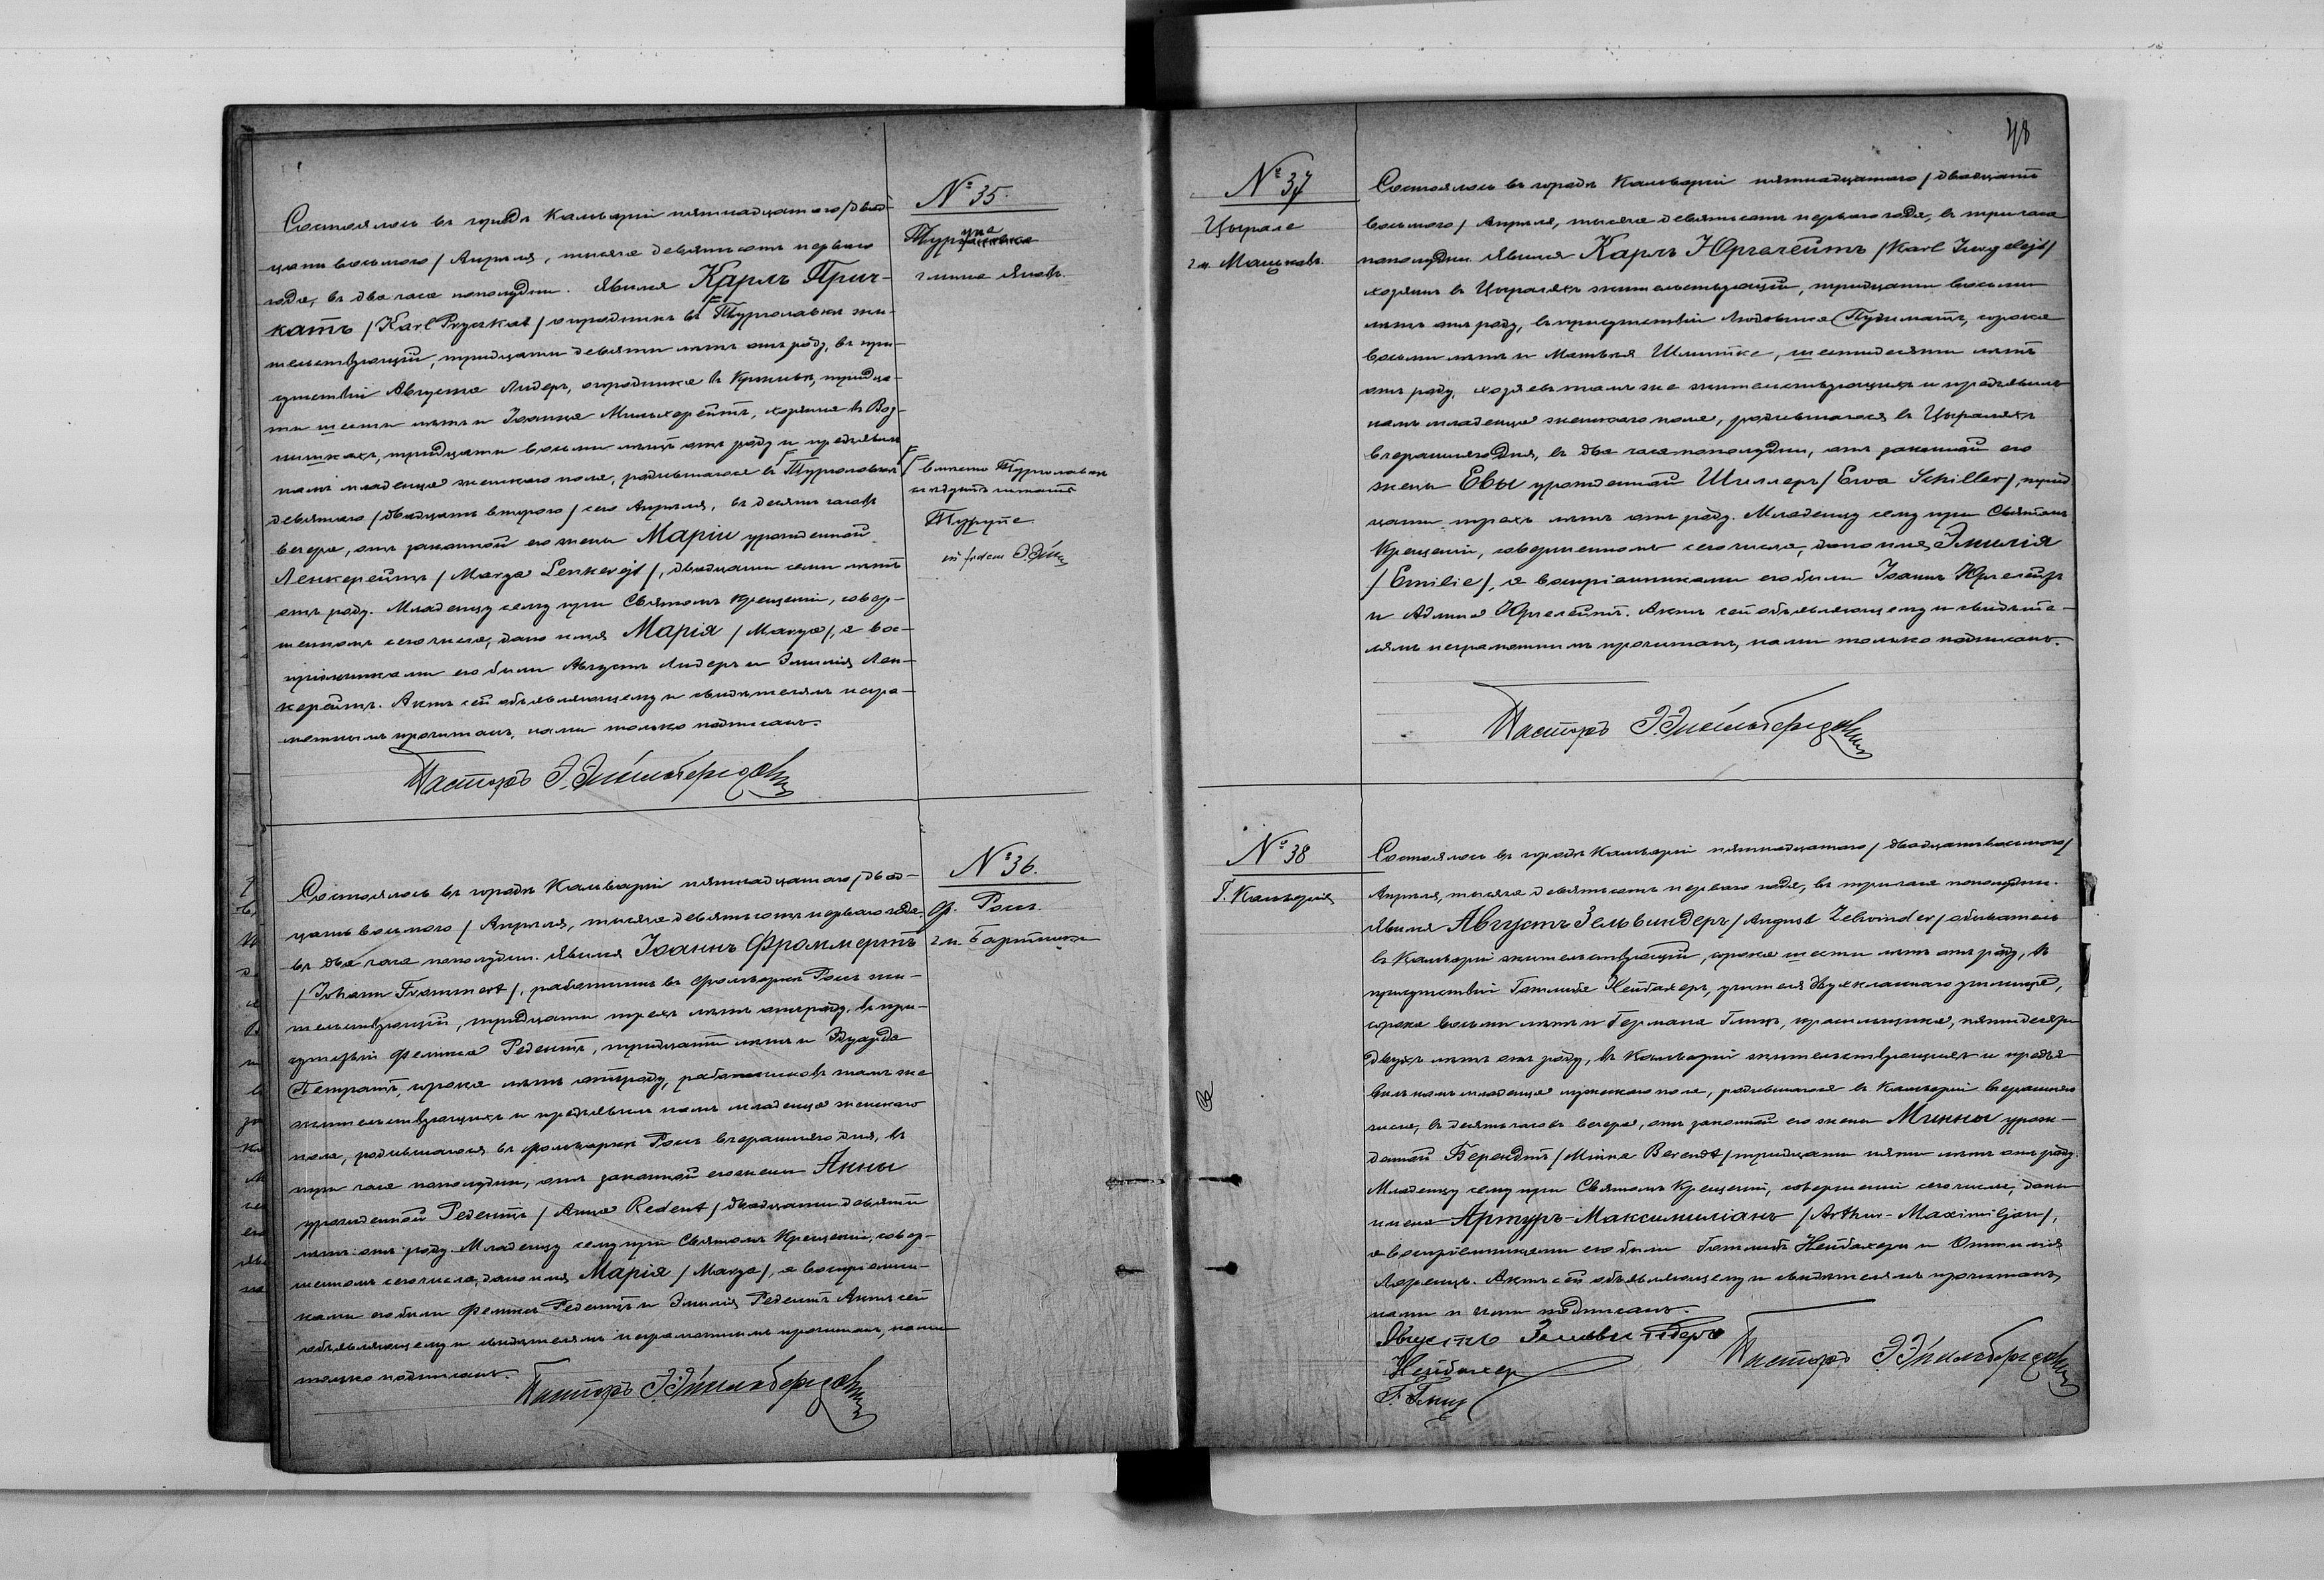 № 35.
Тургупе
гмина Яновъ
Состоялось въ городѣ Кальваріи пятнадцатаго /двад-
цать восьмого/ Апрѣля, тысяча девятьсотъ перваго
года, въ два часа пополудни. Явился Карлъ Прич-
катъ /Karl Pryczkat/ огородникъ въ Турголавкѣ жи-
тельствующій, тридцати девяти лѣтъ отъ роду, въ при-
сутствіи Августа Лидеръ, огородника въ, тридца-
ти шести лѣтъ и Іоанна Мильхерейтъ, хозяина въ
тридцати восьми лѣтъ отъ роду и предъявилъ
намъ младенца женскаго пола, родившагося въ Турголовкѣ
девятаго /двадцать второго/ сего Апрѣля, въ десять часовъ
вечера, отъ законной его жены Маріи урожденной
Ленкерейтъ /Marya Lenkerejt/, двадцати семи лѣтъ
отъ роду. Младенцу сему при Святомъ Крещеніи, совер-
шенномъ сего числа, дано имя Марія /Marya/, а вос-
пріемниками его были Августъ Лидеръ и Эмилія Лен-
керейтъ. Актъ сей объявляющему и свидѣтелямъ негра-
мотнымъ прочитанъ, нами только подписанъ.
вмѣсто Турголавки
слѣдуетъ читать
Тургупе
in fidem
Пасторъ
№ 36.
ф. Росъ
гм. Бартники
Состоялось въ городѣ Кальваріи пятнадцатаго /двад-
цать восьмого/ Апрѣля, тысяча девятьсотъ перваго года,
въ два часа пополудни. Явился Іоаннъ Фроммертъ
/Johann Frommert/, работникъ въ фольваркѣ Росъ жи-
тельствующій, тридцати трехъ лѣтъ отъ роду, въ при-
сутствіи Феликса Редентъ, тридцати лѣтъ и Эдуарда
Петратъ, сорока лѣтъ отъ роду, работниковъ тамъ же
жительствующихъ и предъявилъ намъ младенца женскаго
пола, родившагося въ фольваркѣ Росъ вчерашняго дня, въ
три часа пополудни, отъ законной его жены Анны
урожденной Редентъ /Anna Redent/ двадцати девяти
лѣтъ отъ роду. Младенцу сему при Святомъ Крещеніи, совер-
шенномъ сего числа, дано имя Марія /Marya/, а воспріемни-
ками его были Феликсъ Редентъ и Эмилія Редентъ. Актъ сей
объявляющему и свидѣтелямъ неграмотнымъ прочитанъ, нами
только подписанъ.
Пасторъ
48
№ 37
Цыгале
гм. Мацковъ
Состоялось въ городѣ Кальваріи пятнадцатаго /двадцать
восьмого/ Апрѣля, тысяча девятьсотъ перваго года, въ три часа
пополудни. Явился Карлъ Юргелейтъ /Karl Jurgelejt/
хозяинъ въ Цыгаляхъ жительствующій, тридцати восьми
лѣтъ отъ роду, въ присутствіи Людовика Пудиматъ, сорока
восьми лѣтъ и Матвѣя Шлитке, шестидесяти лѣтъ
отъ роду, хозяевъ тамъ же жительствующихъ и предъявилъ
намъ младенца женскаго пола, родившагося въ Цыгаляхъ
вчерашняго дня, въ два часа пополудни, отъ законной его
жены Евы урожденной Шиллеръ /Ewa Schiller/, трид-
цати трехъ лѣтъ отъ роду. Младенцу сему при Святомъ
Крещеніи, совершенномъ сего числа, дано имя Эмилія
/Emilie/, а воспріемниками его были Іоаннъ Юргелейтъ
и Адлина Юргелейтъ. Актъ сей объявляющему и свидѣте-
лямъ неграмотнымъ прочитанъ, нами только подписанъ.
Пасторъ
№ 38
Г. Кальварія
Состоялось въ городѣ Кальваріи пятнадцатаго /двадцать восьмого/
Апрѣля, тысяча девятьсотъ перваго года, въ три часа пополудни.
Явился Августъ Зельвиндеръ /August Zelwinder/ обыватель
въ Кальваріи жительствующій, сорока шести лѣтъ отъ роду, въ
присутствіи Готлиба Нейбахеръ, учителя двухкласснаго училища,
сорока восьми лѣтъ и Германа Глицъ, красильщика, пятидесяти
двухъ лѣтъ отъ роду, въ Кальваріи жительствующихъ и предъя-
вилъ намъ младенца мужескаго пола, родившагося въ Кальваріи вчерашняго
числа, въ десять часовъ вечера, отъ законной его жены Минны урож-
денной Берендтъ /Minna Berendt/ тридцати пяти лѣтъ отъ роду.
Младенцу сему при Святомъ Крещеніи, совершенномъ сего числа, даны
имена Артуръ-Максимиліанъ /Arthur-Maximiljan/,
а воспріемниками его были Готлибъ Нейбахеръ и Оттилія
Лоренцъ. Актъ сей объявляющему и свидѣтелямъ прочитанъ,
нами и ими подписанъ.
Августъ Зельвиндеръ
Нейбахеръ
Г. Глицъ
Пасторъ